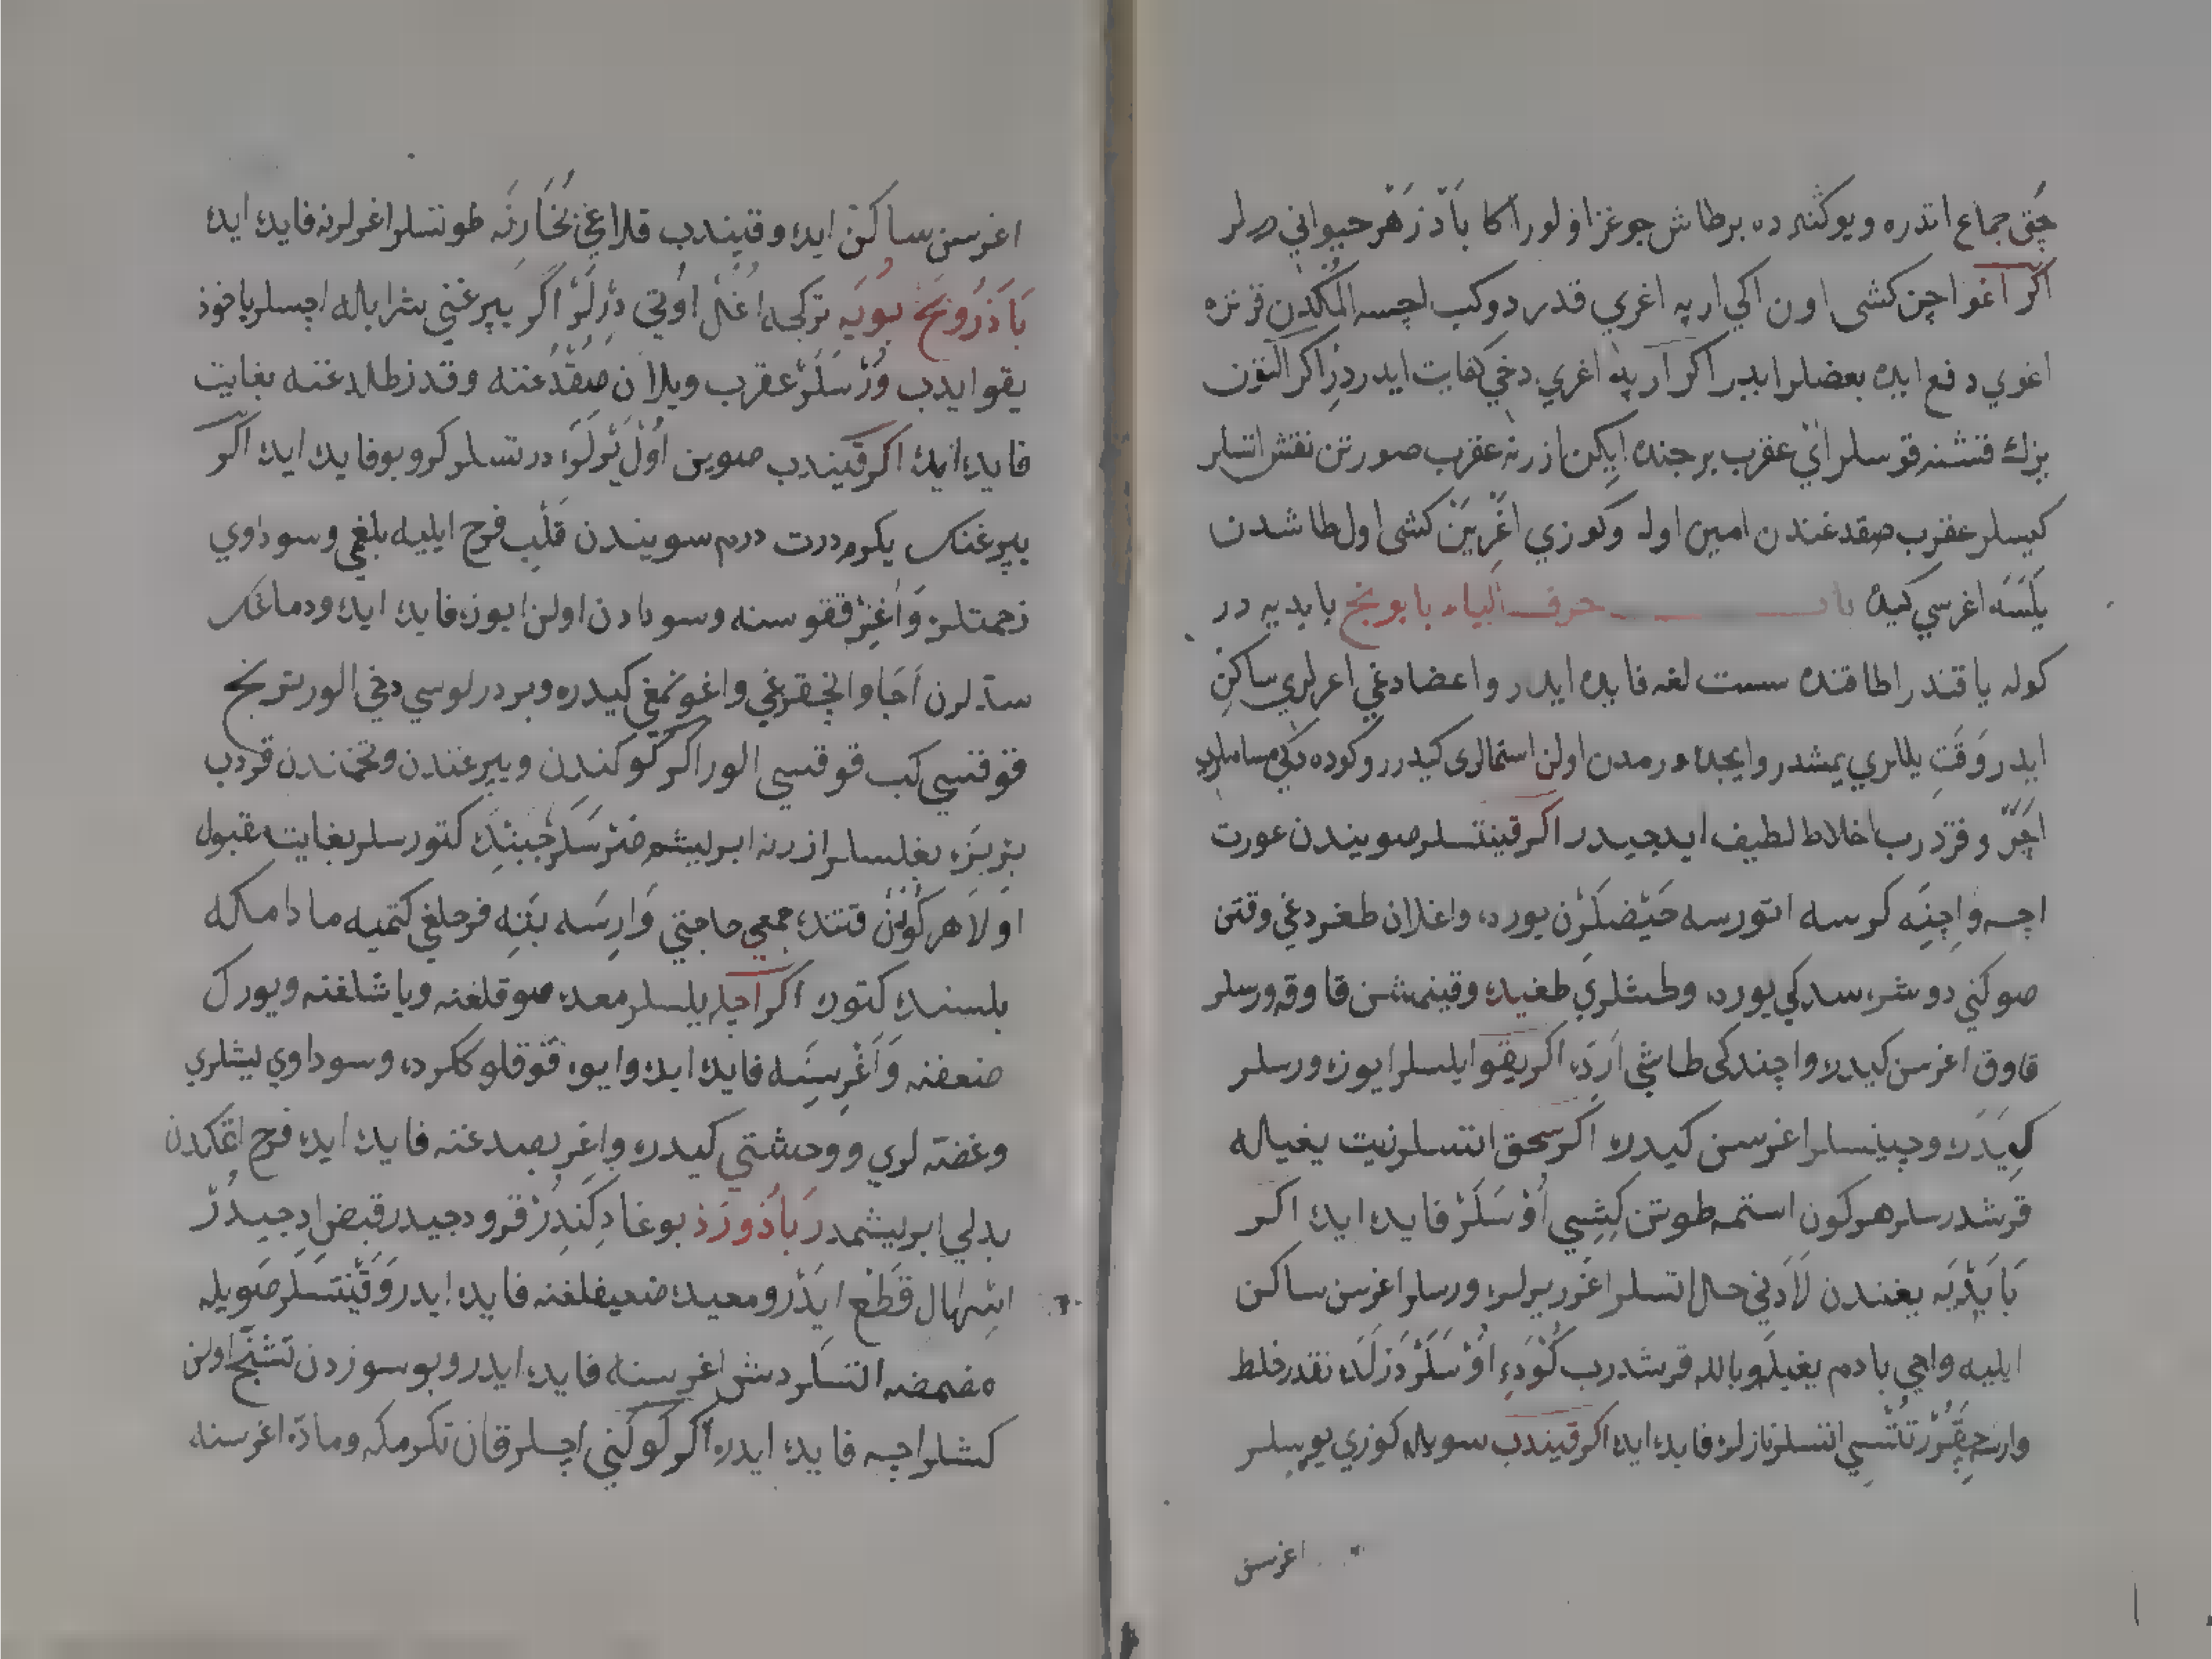 چق جماع اتدره ويوكنه ده برطاش جوغز اولور اكا بادزهر حيواني درلر
اكر اغو اچن كشى اون اكي ارپه اغري قدر دوكب اچسه المكدن قرتره
اغوي دفع ايده بعضلر ايدر اكر ارپه اغري دخي كفايت ايدر در اكر التون
يزك قشنه قوسلر اي عقرب برجنده ايكن ازرنه عقرب صورتن نقش اتسلر
كيسلر عقرب صقدغندن امين اوله وكوزي اغريين كشى اول طاشدن
يلسه اغرسي كيده باب حرف الباء بابونج بابديه در
كوله ياقندر اطاقنده سست لغه فايده ايدر واعضادغي اغرلري ساكن
ايدر وقت يللري يمشدر وايجده ورمدن اولن استمالرى كيدرر وكوده دكي مساملرى
اچر وقزدرب اخلاط لطيف ايدجيدر اكر قينتسلر صويندن عورت
اچسه واچنه كرسه اتورسه حيضلرن يورده واغلان طغردغي وقتن
صوكني دوشره سدكي يورده وطشلري طغيده وقينمشن قاوقه ورسلر
قاوق اغرسن كيدره واچندكى طاشى ارده اكر يقو ايلسلر ايوزه ورسلر
كيدره وچينسلر اغرسن كيدره اكر سحق اتسلر زيت يغياله
قرشدرسلر هركون استمه طوتن كشيي اوسلر فايده ايده اكر
بابديه يغندن لادني حل اتسلر اغرر يرلره ورسلر اغرسن ساكن
ايليه واجي بادم يغيله وبالله قرشدرب كوده اوسلر دزلده نقدر خلط
وارسه چقرر تتسي اتسلر نازلره فايده ايده اكر قيندب سويله كوزي يوسلر
اغرسن
اغرسن ساكن ايده وقيندب قلاغي بخارنه طوتسلر اغرلرنه فايده ايده
باذرونج بويه تركجه اغل اوتي درلر اكر يپرغني شرابله اچسلر ياخوذ
يقو ايدب ورسلر عقرب ويلان صقدغنه وقدز طلادغنه بغايت
فايده ايده اكر قيندب صوين اول يرلره درتسلر كرو بو فايده ايده اكر
يپرغنك يكرم درت درم سويندن قلب فرح ايليه بلغمي وسوداوي
زحمتلره واغز ققوسنه وسودادن اولن ايوزه فايده ايده ودماغك
سدلرن اچا وانچقرغي واغونمغي كيدره وبر درلوسي دخي الور ترنج
قوقسي كب قوقسي الور اكر كوكندن ويپرغندن وتخمندن قردب
بربزه بغلسلر ازرنه ابريشم صرسلر جبنده كتورسلر بغايت مقبول
اولا هركونن قتنده جمعي حاجتي وارسه بتنه فرحلغي كتميه مادامكه
بلسنده كتوره اكر اچله يلسلر معده صوقلغنه وياشلغنه ويورك
ضعفنه واغرسنه فايده ايده وايوه قوقلو ككرده وسوداوي ليشلري
وغضه لري ووحشتي كيدره واغر بصدغنه فايده ايده فرح اتمكدن
بدلي ابريشمدر باذورد بوغا دكندر قرودجيدر قبض ادجيدر
اسهال قطع ايدر ومعيده ضعيفلغنه فايده ايدر وقينتسلر صويله
مضمضه اتسلر دش اغرسنه فايده ايدر وبو سوزدن تشنج اولن
كشلر اچه فايده ايدره اكر كوكني اچسلر قان تكرمكه وماده اغرسنه